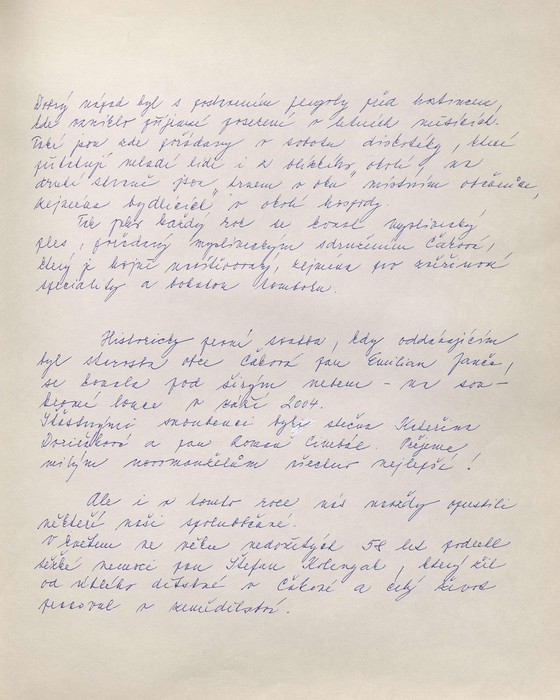 Dobrý nápad byl s postavením pergoly před hostincem,
kde vzniklo příjemné posezení v letních měsících.
Také jsou zde pořádány v sobotu diskotéky, které
přitahují mladé lidi i z blízkého okolí, na
druhé straně jsou "trnem v oku" místním občanům,
zejména bydlících v okolí hospody.
Tak jako každý rok se konal myslivecký
ples, pořádaný mysliveckým sdružením Čáková,
který je hojně navštěvovaný, zejména pro zvěřinové
speciality a bohatou tombolu.
Historicky první svatba, kdy oddávajícím
byl starosta obce Čáková pan Emilian Janča,
se konala pod širým nebem - na sou-
kromé louce v září 2004.
Šťastnými snoubenci byli slečna Kateřina
a pan Roman. Přejeme
milým novomanželům všechno nejlepší!
Ale i v tomto roce nás navždy opustili
někteří naši spoluobčané.
V květnu ve věku nedožitých 58 let podlehl
těžké nemoci pan Štefan, který žil
od útlého dětství v Čákové a celý život
pracoval v zemědělství.